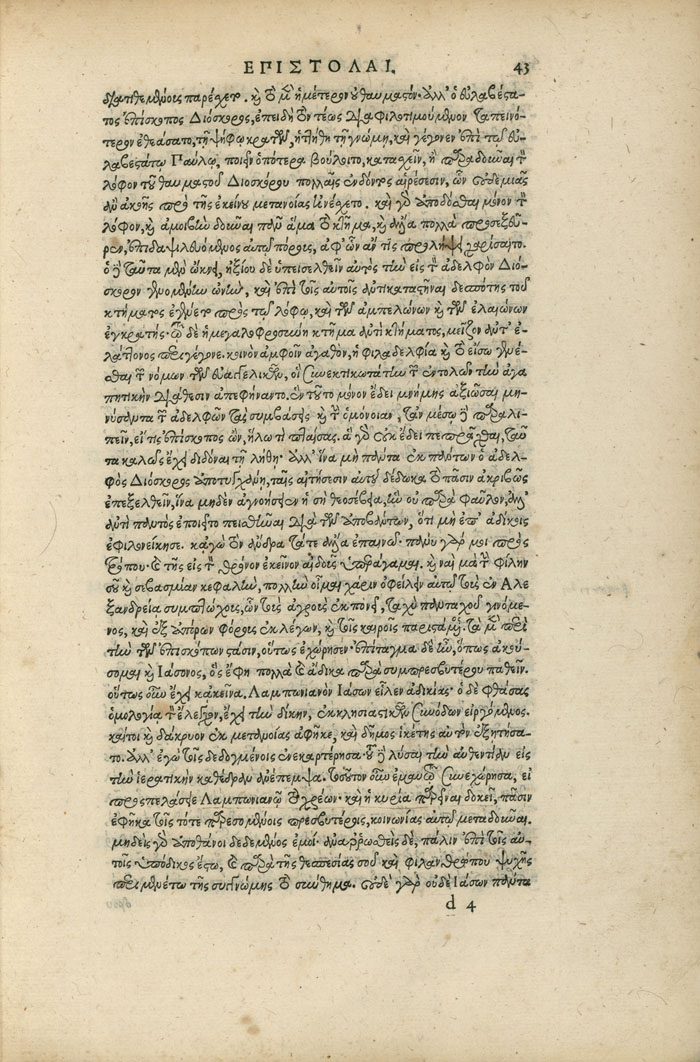 ΕΠΙΣΤΟΛΑΙ. 43
διατιθεμένοις παρέχειν. καὶ τὸ μὲν ἡμέτερον οὐ θαυμαστόν· ἀλλ' ὁ εὐλαβέστα-
τος ἐπίσκοπος Διόσκορος, ἐπειδὴ τὸν τέως διαφιλοτιμούμενον ταπεινό-
τερον ἐθεάσατο, τῇ ψήφῳ κρατῶν, ἡττήθη τῇ γνώμῃ, καὶ γέγονεν ἐπὶ τῷ εὐ-
λαβεστάτῳ Παύλῳ, ποιεῖν ὁπότερα βούλοιτο, κατασχεῖν, ἢ παραδοῦναι τὸν
λόφον τοῦ θαυμαστοῦ Διοσκόρου πολλαῖς ἐνδόντος αἱρέσεσιν, ὧν οὐδεμιᾶς
δι' ἀκοῆς πρὸ τῆς ἐκείνου μετανοίας ἠνέσχετο. καὶ γὰρ ἀποδόσθαι μόνον τὸν
λόφον, καὶ ἀμοιβὴν δοῦναι πᾶν ἅμα τὸ κτῆμα, καὶ ἄλλα πολλὰ προσεξεῦ-
ρεν, ἐπιδαψιλευόμενος αὐτῷ πόρους, ἀφ' ὧν ἄν τις προληφθεὶς χαρίσαιτο.
ὁ δὲ ταῦτα μὲν ὤκνει, ἠξίου δὲ ὑπεισελθεῖν αὐτὸς τὴν εἰς τὸν ἀδελφὸν Διό-
σκορον γενομένην ὠνήν, καὶ ἐπὶ τοῖς αὐτοῖς ἀντικαταστῆναι δεσπότης τοῦ
κτήματος ἐγένετο πρὸς τῷ λόφῳ, καὶ τῶν ἀμπελώνων καὶ τῶν ἐλαιώνων
ἐγκρατής· τῷ δὲ ἡ μεγαλοφροσύνη κτῆμα ἀντὶ κτήματος, μεῖζον ἀντ' ἐ-
λάττονος περιγέγονε. κοινὸν ἀμφοῖν ἀγαθὸν, ἡ φιλαδελφία καὶ τὸ εἴσω γενέ-
σθαι τῶν νόμων τῶν εὐαγγελικῶν, οἳ συνεκτικωτάτην τῶν ἐντολῶν τὴν ἀγα
πητικὴν διάθεσιν ἀπεφήναντο. ἐν τοῦτο μόνον ἔδει μνήμης ἀξιῶσαι μη-
νύσαντα τῶν ἀδελφῶν τὰς συμβάσεις καὶ τὴν ὁμόνοιαν, τὰν μέσῳ δὲ παραλι-
πεῖν, εἴ τις ἐπίσκοπος ὢν, ἥλω τι πταίσας. ἃ γὰρ οὐκ ἔδει πεπρᾶχθαι, ταῦ
τα καλῶς ἔχει διδόναι τῇ λήθῃ. ἀλλ' ἵνα μὴ πάντα ἐκ πάντων ὁ ἀδελ-
φὸς Διόσκορος ἀποτυγχάνῃ, ταῖς αἰτήσεσιν αὐτοῦ δέδωκα τὸ πᾶσιν ἀκριβῶς
ἐπεξελθεῖν, ἵνα μηδὲν ἀγνοήσειεν ἡ σὴ θεοσέβεια, ἣν οὐ παρὰ φαῦλον, ἀλλ'
ἀντὶ παντὸς ἐποιεῖτο πεισθῆναι διὰ τῶν ὑποβάντων, ὅτι μὴ ἐπ' ἀδίκοις
ἐφιλονείκησε. κἀγὼ τὸν ἄνδρα τά τε ἄλλα ἐπαινῶ· πάνυ γάρ μοι πρὸς
τρόπου· καὶ τῆς εἰς τὸν θρόνον ἐκεῖνον αἰδοῦς ὑπεράγαμαι. καὶ ναὶ μὰ τὴν φίλην
σοῦ καὶ σεβασμίαν κεφαλὴν, πολλὴν οἶμαι χάριν ὀφείλειν αὐτῷ τοὺς ἐν Ἀλε
ξανδρείᾳ συμπτώχους, ὧν τοῖς ἀγροῖς ἐκπονεῖ, ταχὺ πανταχοῦ γινόμε-
νος, καὶ ἐξ ἀπόρων φόρους ἐκλέγων, καὶ τοῖς καιροῖς παριστάμενος. τὰ μὲν περὶ
τὴν τῶν ἐπισκόπων στάσιν, οὕτως ἐχώρησεν· ἐπίταγμα δὲ ἦν, ὅπως ἀκού-
σομαι καὶ Ἰάσονος, ὃς ἔφη πολλὰ καὶ ἄδικα παρὰ συμπρεσβυτέρου παθεῖν.
οὕτως οὖν ἔχει κἀκεῖνα. Λαμπωνιανὸν Ἰάσων εἷλεν ἀδικίας· ὁ δὲ φθάσας
ὁμολογίᾳ τὸν ἔλεγχον, ἔχει τὴν δίκην, ἐκκλησιαστικῶν συνόδων εἰργόμενος.
καίτοι καὶ δάκρυον ἐκ μετανοίας ἀφῆκε, καὶ δῆμος ἱκέτης αὐτὸν ἐξῃτήσα-
το. ἀλλ' ἐγὼ τοῖς δεδογμένοις ἐνεκαρτέρησα· τοῦ δὲ λῦσαι τὴν αὐθεντίαν εἰς
τὴν ἱερατικὴν καθέδραν ἀνέπεμψα. τοσοῦτον οὖν ἐμαυτῷ συνεχώρησα, εἰ
προσπελάσειε Λαμπωνιανῷ τὸ χρέων· καὶ ἡ κυρία παρεῖναι δοκεῖ, πᾶσιν
ἐφῆκα τοῖς τότε παρεσομένοις πρεσβυτέροις, κοινωνίας αὐτῷ μεταδοῦναι.
μηδεὶς γὰρ ἀποθάνοι δεδεμένος ἐμοί· ἀναρρωσθεὶς δὲ, πάλιν ἐπὶ τοῖς αὐ-
τοῖς ὑπόδικος ἔστω, καὶ παρὰ τῆς θεσπεσίας σοῦ καὶ φιλανθρώπου ψυχῆς
περιμενέτω τῆς συγγνώμης τὸ σύνθημα. οὐδὲ γὰρ οὐδὲ Ἰάσων πάντα
d 4